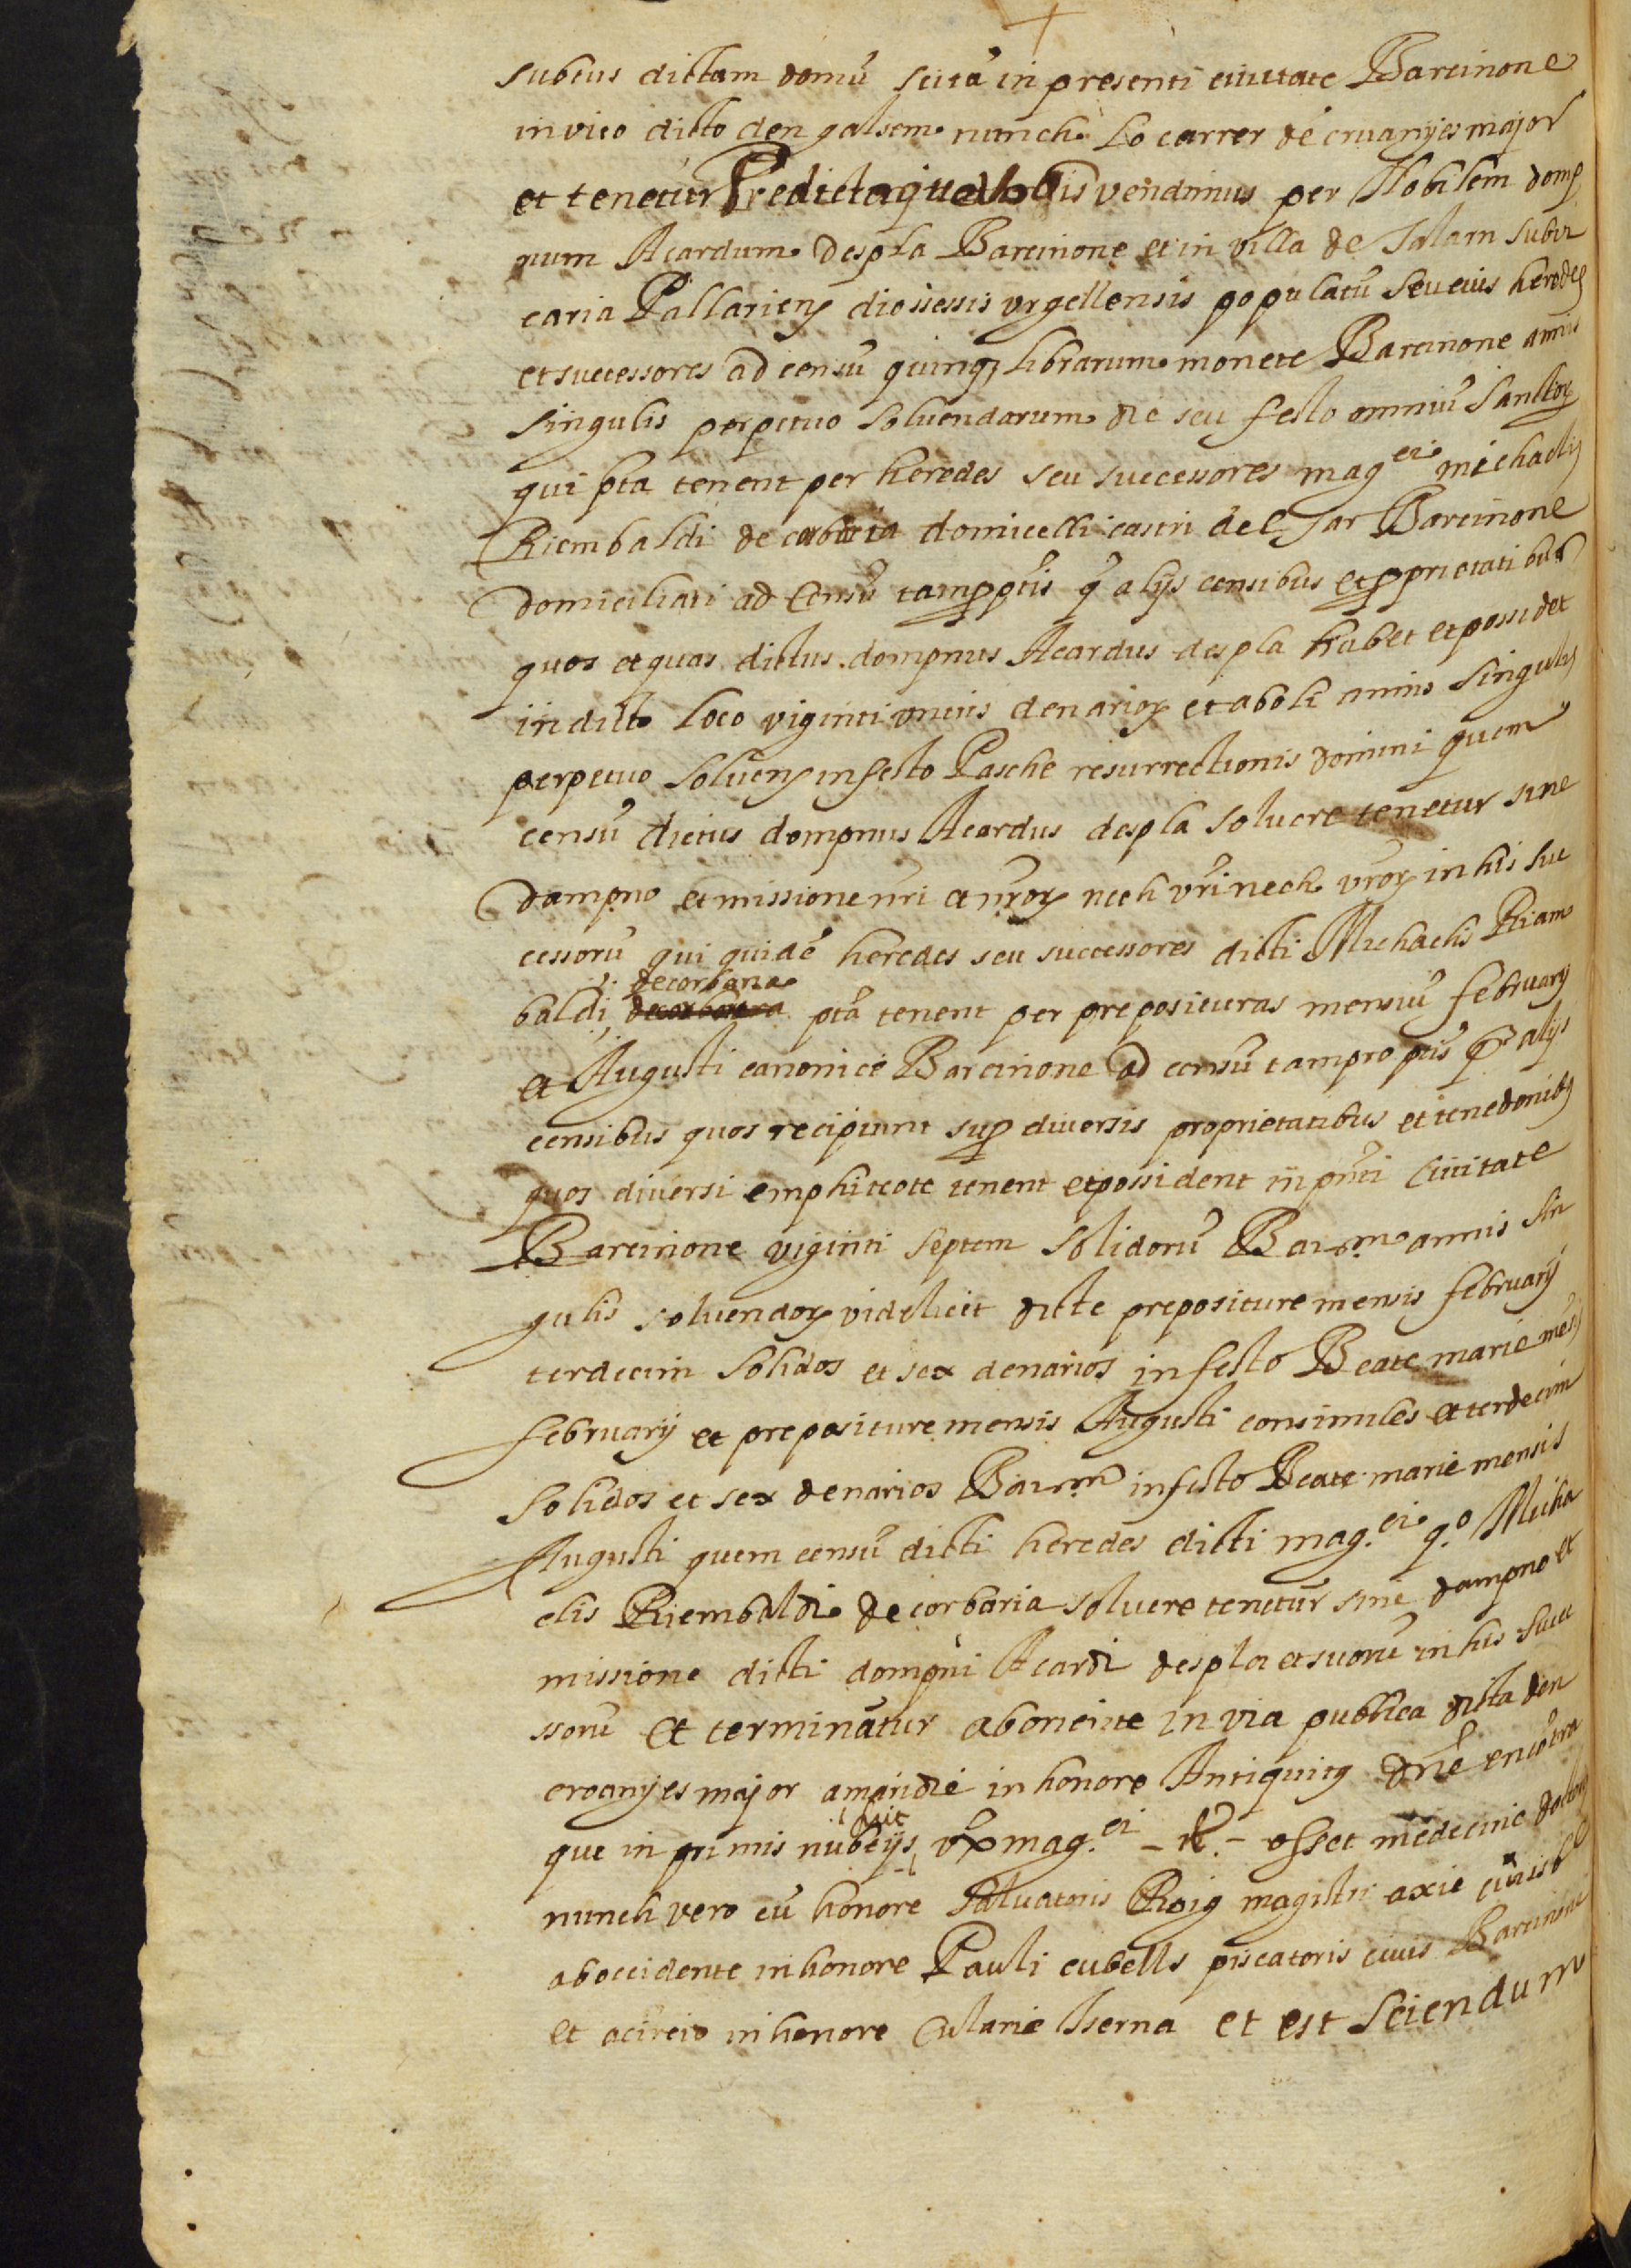 subeus dictam domũ scitã in presenti ciuitate Barcinone
in vico dicto den galsem nunch Lo carrer de cruanyes major
et tenetur Predictaque vobis vendimus per Nobilem domp
num Acardum Despla Barcinone et in villa de Talarn subvi
caria Pallarieñ diossessis vrgellensis populatũ seu eius heredes
et successores ad censũ quinq librarum monete Barcinone annis
singulis perpetuo soluendarum die seu festo omniũ Sanctoꝝ
qui pta tenent per heredes seu successores mag.ci michaelis
Riembaldi de corbaria domicelli castri del far Barcinone
domiciliati ad Censũ tam pro ptis q̃ alijs censibus et proprietatibus
quos et quas dictus dompnus Acardus despla habet et possidet
in dicto loco viginti vnius denarioꝝ et aboli annis singulis
perpetuo soluenꝝ in festo Pasche resurrectionis domini quem
censũ dictus dompnus Acardus despla soluere tenetur sine
dampno et missione nr̃i a nr̃oꝝ nech vr̃i nech vr̃oꝝ in his suc
cessorũ qui quidẽ heredes seu successores dicti Michaelis Riam
decorbaria
baldi ptã tenent per preposituras mensiũ february
et Augusti canonice Barcinone ad censũ tam pro ptis q̃ alijs
censibus quos recipiunt sup diuersis proprietatibus et tenedonibꝫ
quos diuersi emphiteote tenent et possident in pñti Ciuitate
Barcinone viginti septem solidorũ Bar.m annis sin
gulis soluendoꝝ videlicet dicte prepositure mensis february
terdecim solidos et sex denarios in festo Beate marie meñs
february et prepositure mensis Augusti consimiles et terdecim
solidos et sex denarios Bar.m in festo Beate marie mensis
Augusti quem censũ dicti heredes dicti mag.ci q.º Micha
elis Riembaldi de corbaria soluere tenetur sine dampno et
missione dicti dompni Acardi despla et suorũ in his succe
ssorũ et terminatur ab oriente in via publica dicta den
croanyes major a meridie in honore Antiquitꝰ dñe
fuit
que in primis nubtijs vx mag.ci - N. - osset medecine doctoris
nunch vero cũ honore Saluatoris Roig magistri axie
ab occidente in honore Pauli cubells piscatoris ciuis Barcinone
et a circio in honore Eularie Iserna et est Sciendum